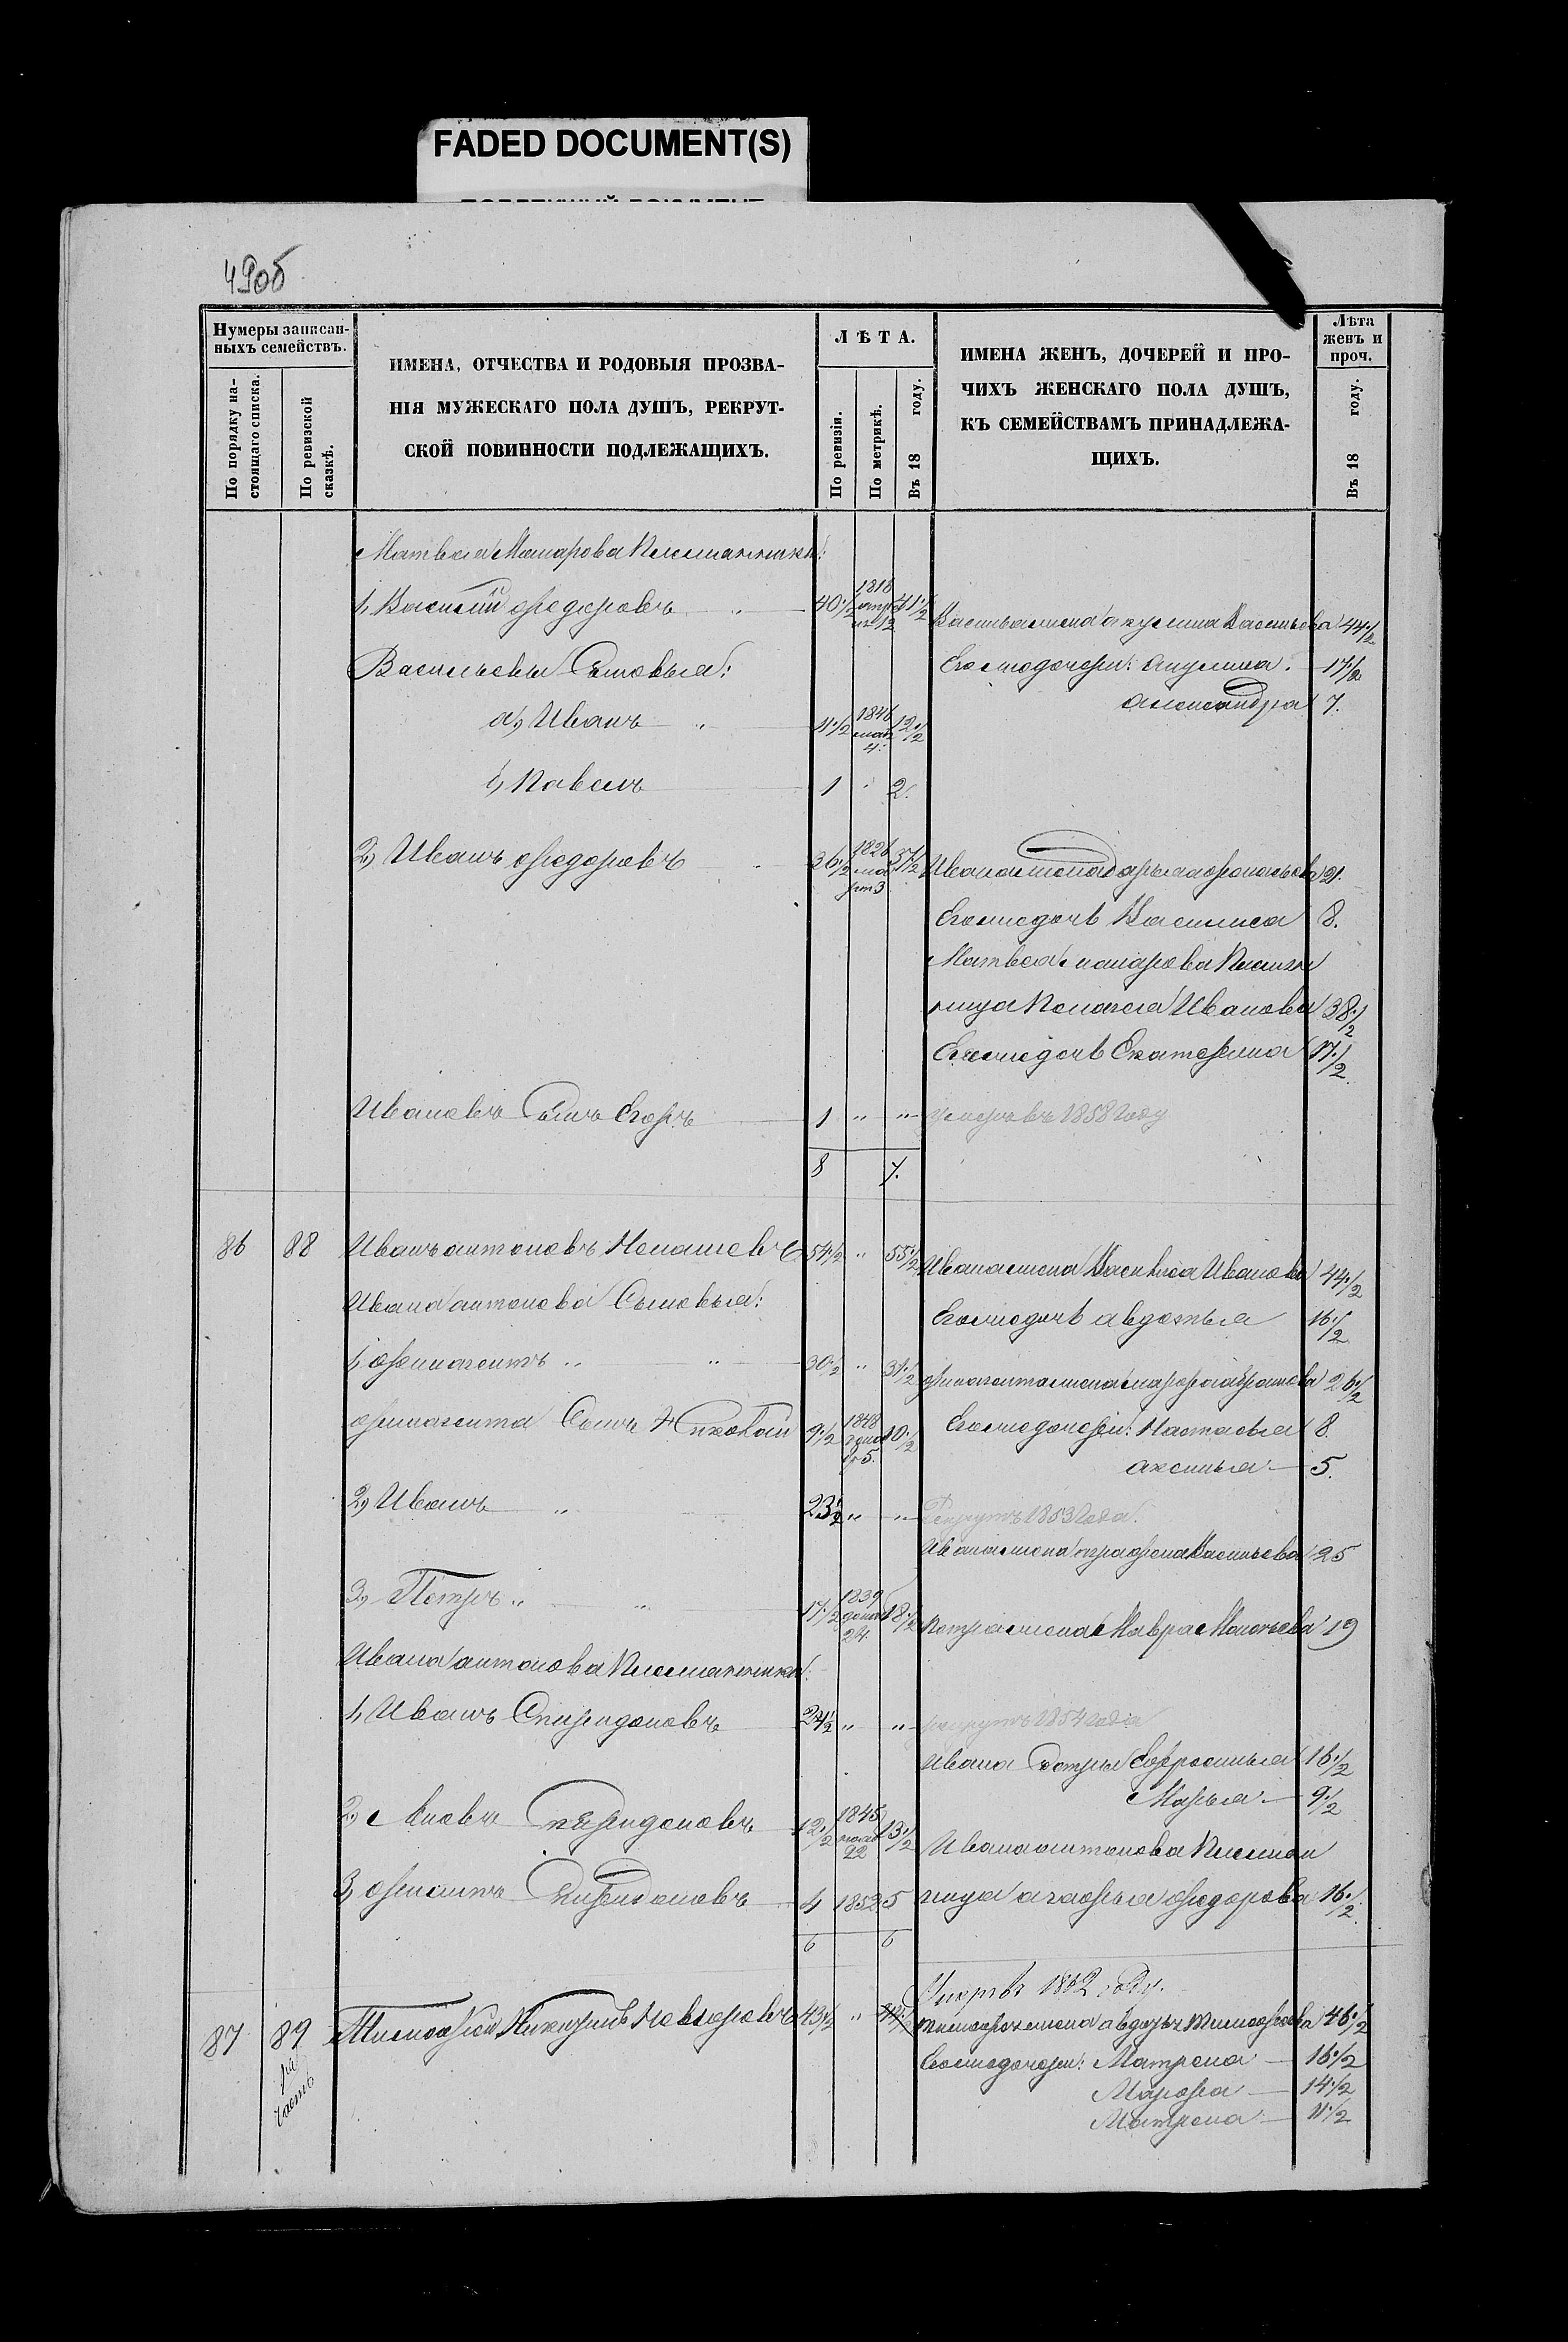 FADED DOCUMENT(S)
49об
Нумеры записан-
ныхъ семействъ.
По порядку на-
стоящаго списка.
По ревизской
сказкѣ.
ИМЕНА, ОТЧЕСТВА И РОДОВЫЯ ПРОЗВА-
НІЯ МУЖЕСКАГО ПОЛА ДУШЪ, РЕКРУТ-
СКОЙ ПОВИННОСТИ ПОДЛЕЖАЩИХЪ.
ЛѢТА.
По ревизіи.
По метрикѣ.
Въ 18 году.
ИМЕНА ЖЕНЪ, ДОЧЕРЕЙ И ПРО-
ЧИХЪ ЖЕНСКАГО ПОЛА ДУШЪ,
КЪ СЕМЕЙСТВАМЪ ПРИНАДЛЕЖА-
ЩИХЪ.
Лѣта
женъ и
проч.
Въ 18 году.
Матвея Макарова Племянники:
1, Василій Федоровъ 40 1/2 1818 41 1/2 Васильяжена Акулина Васильева 44 1/2
Васильевы Сыновья: Егожедочери: Акулина. 17 1/2
Александра 7.
а, Иванъ 11 1/2 1846 мая 4. 12 1/2
б, Павелъ 1 2.
2, Иванъ Федоровъ 36 1/2 1826 мартъ 3 37 1/2 Иванажена Дарья Афонасьева 21.
Егожедочь Василиса 8.
Матвея Макарова Племян
ница Пелагея Иванова 38 1/2
Еежедочь Екатерина 17 1/2
Ивановъ Сынъ Егоръ 1 " " умеръ въ 1858 году
8 7.
86 88 Иванъ Антоновъ Ненашевъ 54 1/2 " 55 1/2 Иванажена Василиса Иванова 44 1/2
Ивана Антонова Сыновья:
Егожедочь Авдотья 16 1/2
1, Филагентъ " " 30 1/2 " 31 1/2 Филагентажена Марфа Абрамова 26 1/2
Филагента Сынъ Николай 9 1/2 1848 декабр 5. 10 1/2 Егожедочери: Настасья 8.
Аксинья 5.
2, Иванъ " 23 1/2 " " Рекрутъ 1853 года.
Иванажена Аграфена Васильева 25
3, Петръ " " 17 1/2 1839 декаб 24. 18 1/2 Петражена Мавра Макеева 19
Ивана Антонова Племянники:
1, Иванъ Спиридоновъ 24 1/2 " " рекрутъ 1854 года
Ивана Сестры Евфросинья 16 1/2
Марья 9 1/2
2, Яковъ Спиридоновъ 12 1/2 1845 22 13 1/2
Ивана Антонова Племян
3, Филатъ Спиридоновъ 4 1852 5 ница Агафья Федорова 16 1/2
6 6
Умеръ въ 1862 году.
87 89 Тимофей Никитинъ 43 1/2 " 44 1/2 Тимофеяжена Авдотья Тимофеева 46 1/2
на часть
Егожедочери: Матрена 16 1/2
Марфа 14 1/2
Матрена 11 1/2